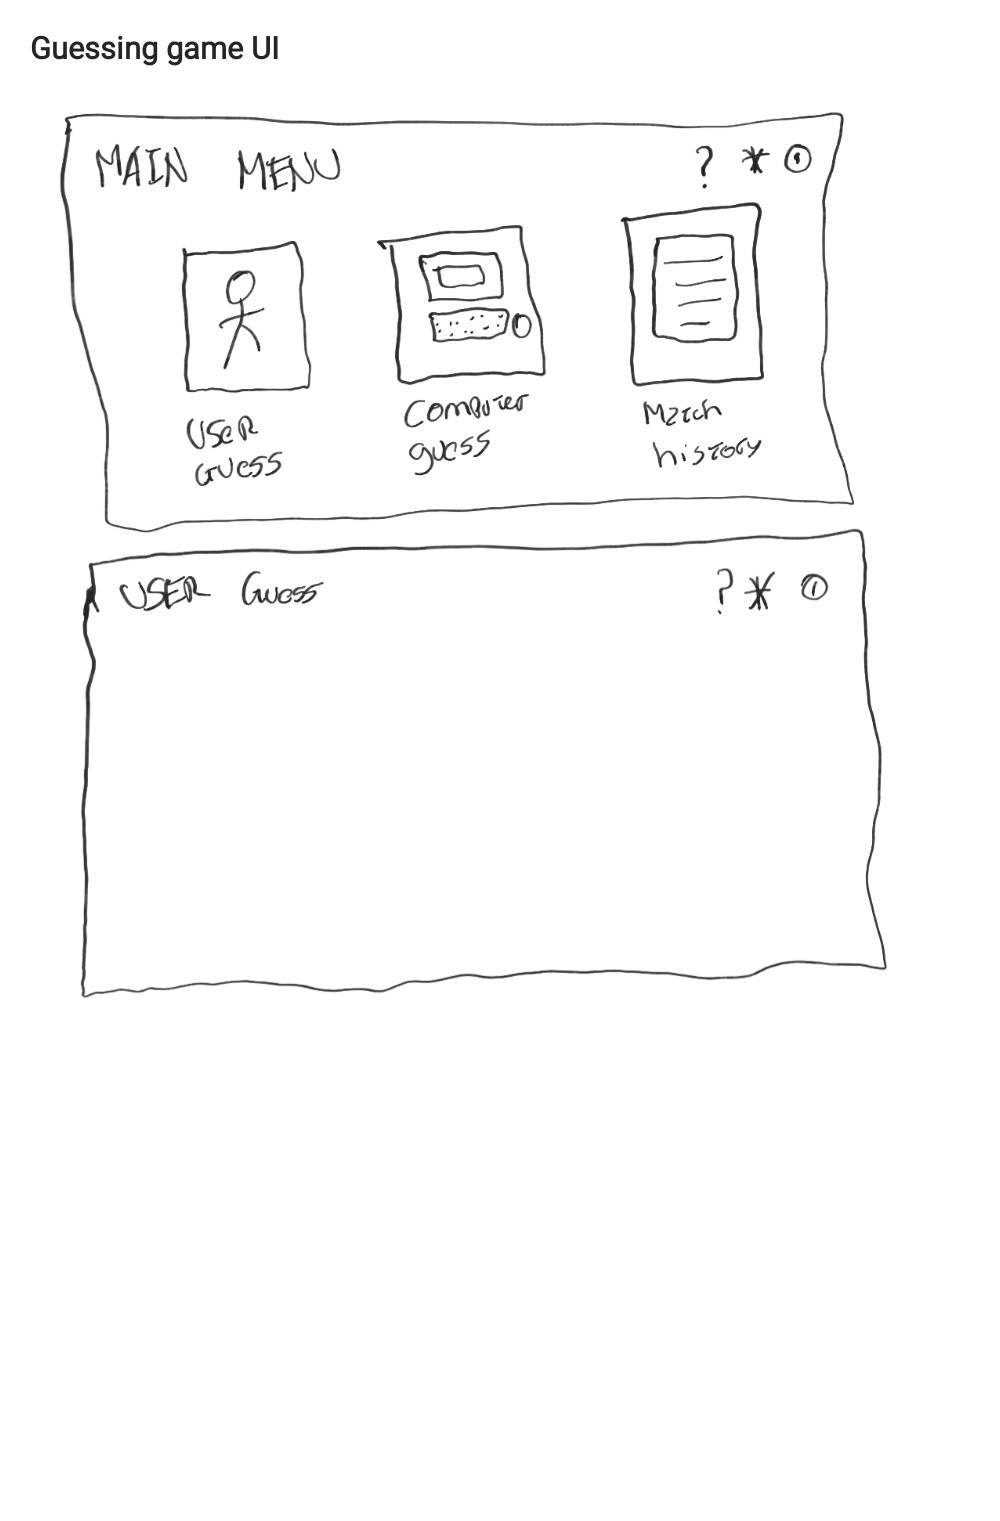 Guessing game UI
MAIN MENU ? * ①
USER GUESS
Computer guess
Match history
USER Guess ? * ①